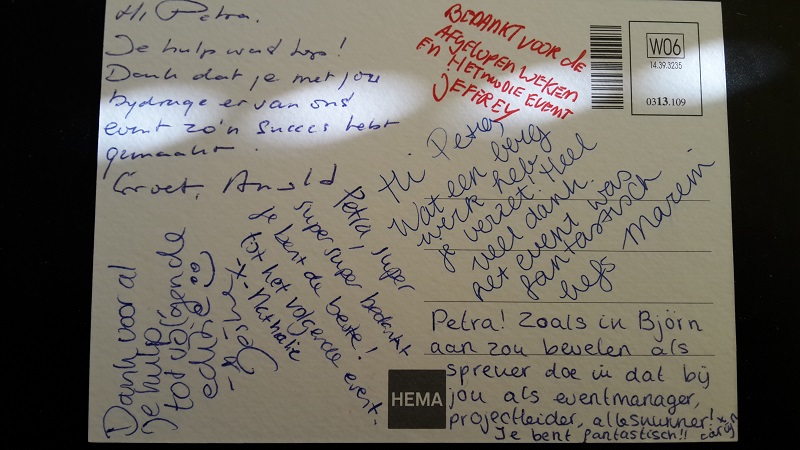 Hi Petra.
Je hulp was top!
Dank dat je met jou
bydrage er van ons
event zo'n succes hebt
gemaakt.
Groet, Arnold
BEDANKT VOOR DE
AFGELOPEN WEKEN
EN HET MOOIE EVENT
JEFFREY
W06
14.39.3235
0313.109
Hi Petra,
Wat een berg
werk heb
je verzet. Heel
veel dank.
Het event was
fantastisch
liefs Marein
Petra, super
super super bedankt
Je bent de beste!
tot het volgende event.
-x- Nathalie
Dank voor al
je hulp,
tot volgende
editie
Petra! Zoals ik Björn
aan zou bevelen als
spreker doe ik dat bij
jou als eventmanager,
projectleider, alleskunner!
Je bent fantastisch!! x carijn
HEMA